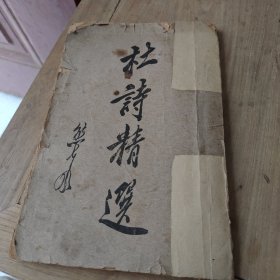 杜詩精選